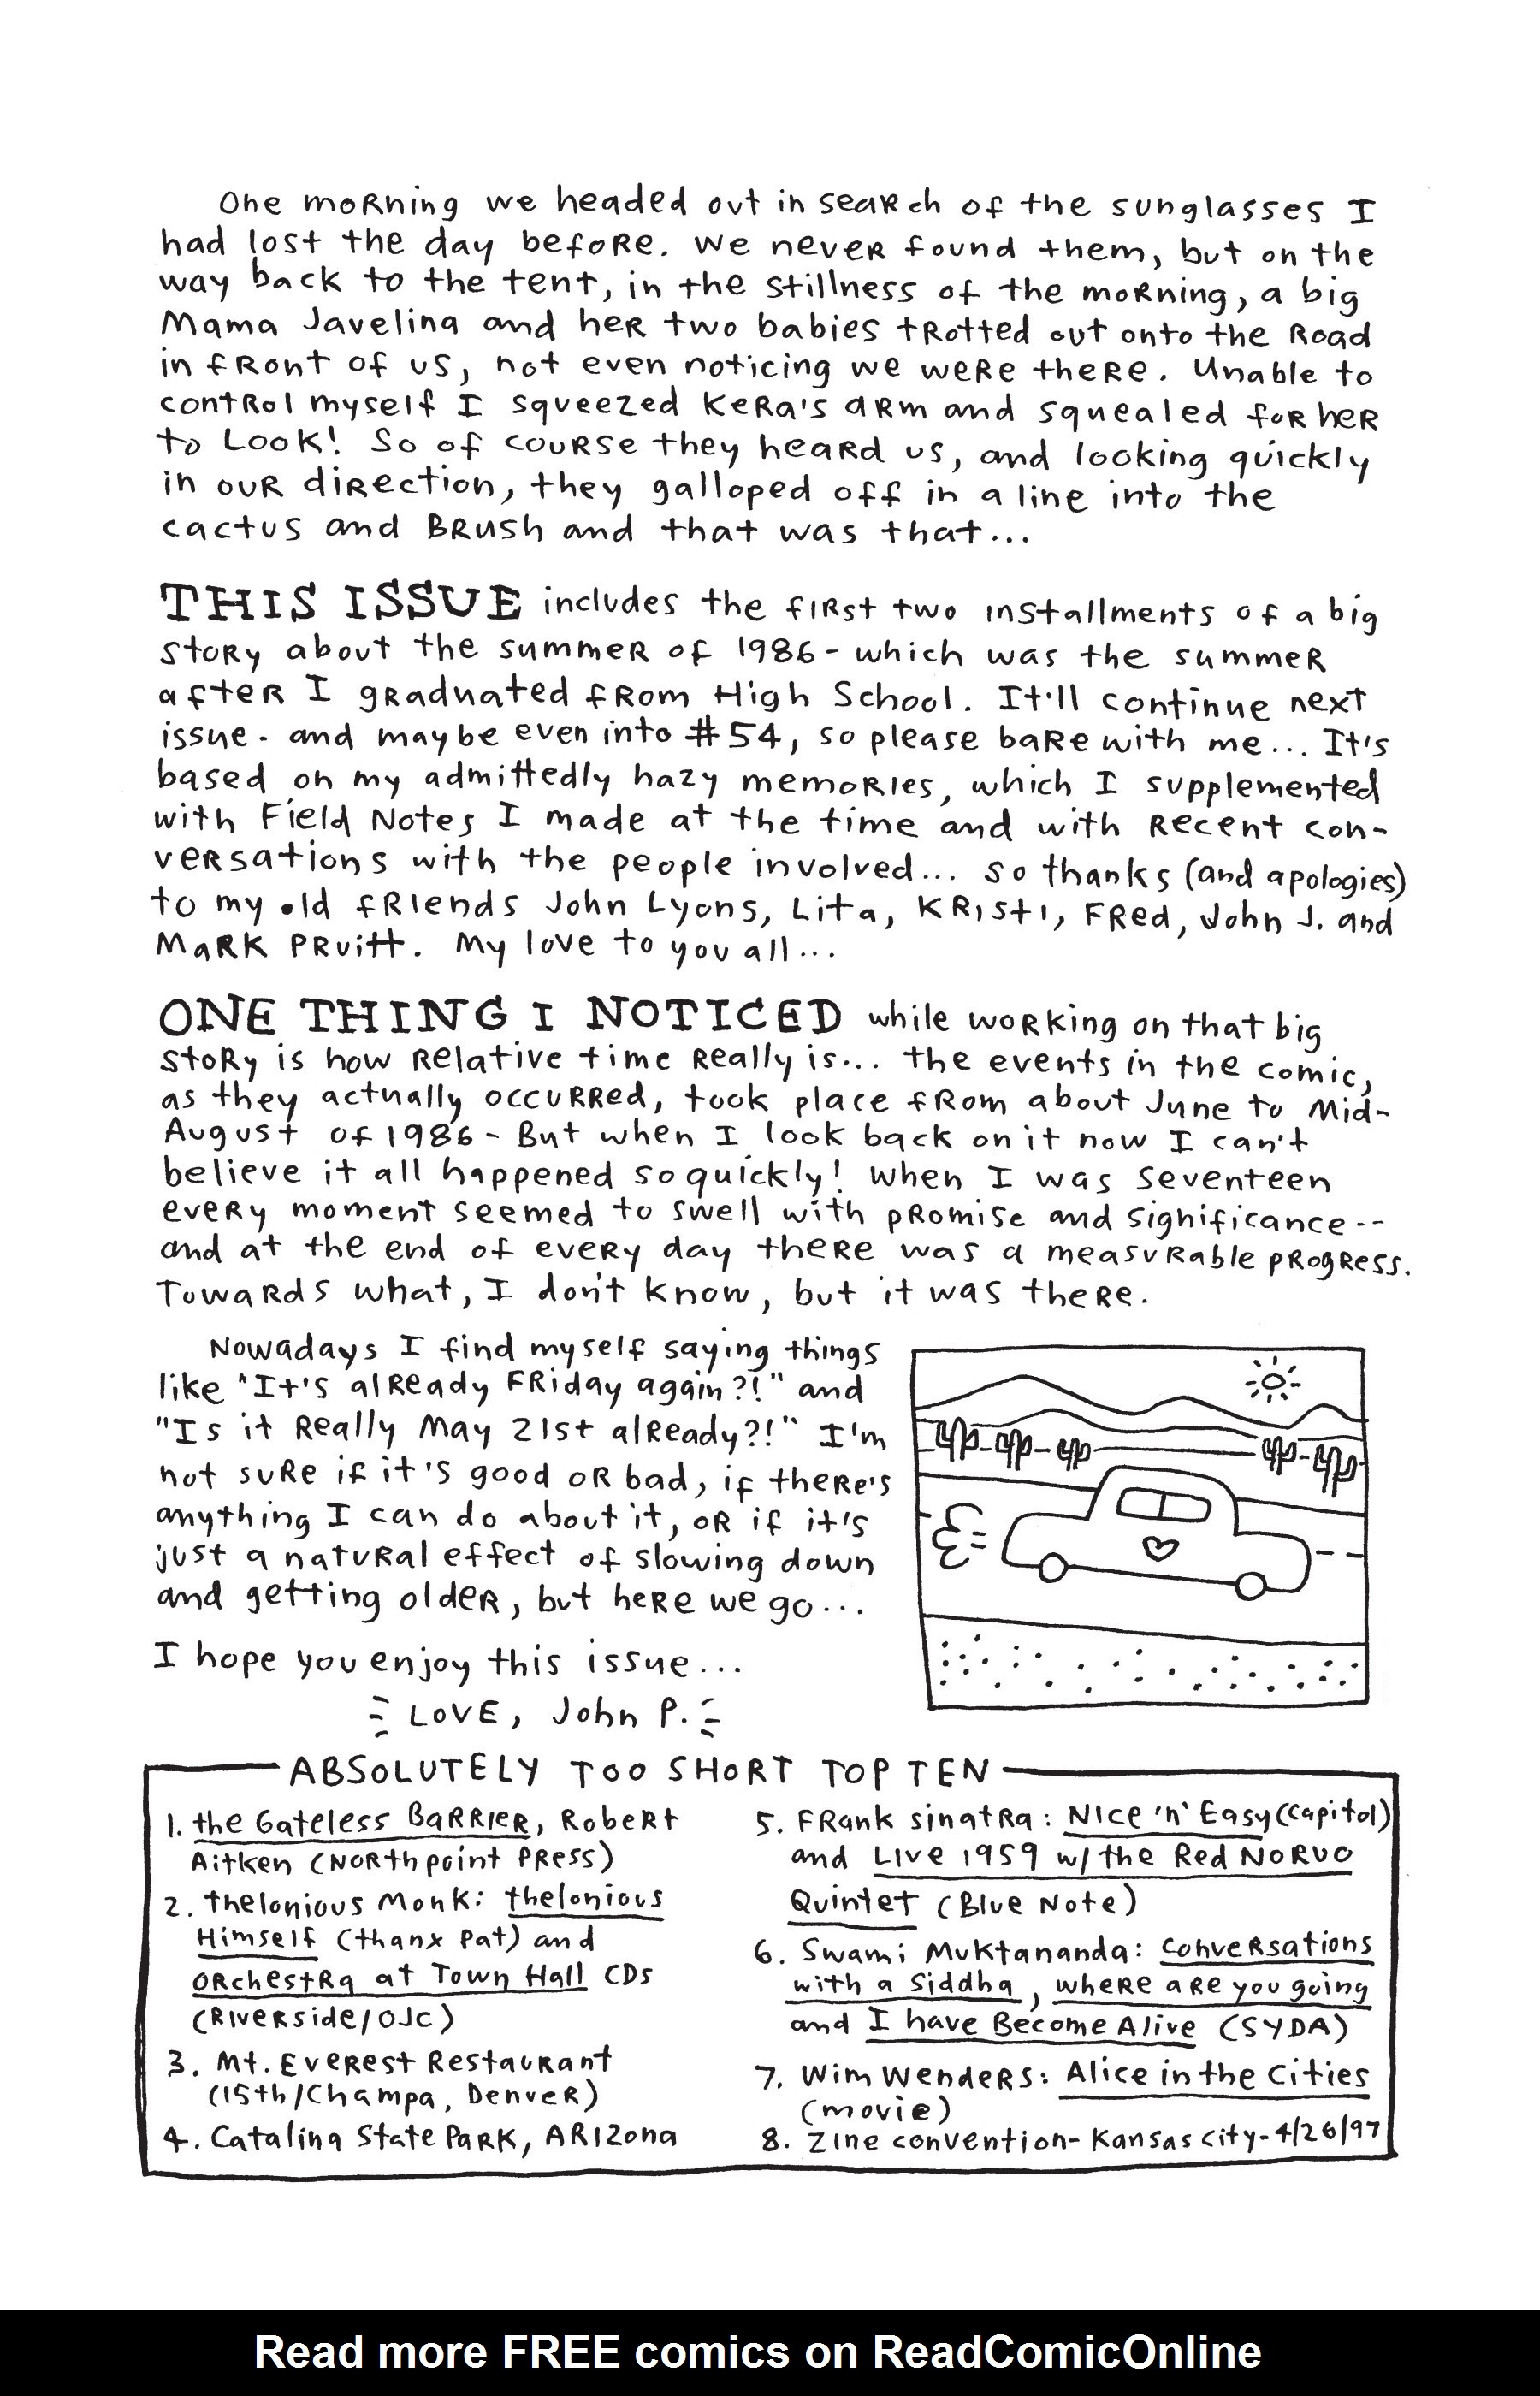 One morning we headed out in search of the sunglasses I
had lost the day before. We never found them, but on the
way back to the tent, in the stillness of the morning, a big
Mama Javelina and her two babies trotted out onto the Road
in front of us, not even noticing we were there. Unable to
control myself I squeezed Kera's arm and squealed for her
to Look! So of course they heard us, and looking quickly
in our direction, they galloped off in a line into the
cactus and Brush and that was that...
THIS ISSUE includes the first two installments of a big
story about the summer of 1986 - which was the summer
after I graduated from High School. It'll continue next
issue - and maybe even into #54, so please bare with me... It's
based on my admittedly hazy memories, which I supplemented
with Field Notes I made at the time and with recent con-
versations with the people involved... so thanks (and apologies)
to my old friends John Lyons, Lita, Kristi, Fred, John J. and
Mark Pruitt. My love to you all...
ONE THING I NOTICED while working on that big
story is how relative time really is... the events in the comic,
as they actually occurred, took place from about June to Mid-
August of 1986 - But when I look back on it now I can't
believe it all happened so quickly! When I was seventeen
every moment seemed to swell with promise and significance--
and at the end of every day there was a measurable progress.
Towards what, I don't know, but it was there.
Nowadays I find myself saying things
like "It's already Friday again?!" and
"Is it Really May 21st already?!" I'm
not sure if it's good or bad, if there's
anything I can do about it, or if it's
just a natural effect of slowing down
and getting older, but here we go...
I hope you enjoy this issue...
LOVE, John P.
ABSOLUTELY TOO SHORT TOP TEN
1. the Gateless Barrier, Robert
Aitken (Northpoint Press)
2. Thelonious Monk: Thelonious
Himself (thanx Pat) and
Orchestra at Town Hall CDs
(Riverside/OJC)
3. Mt. Everest Restaurant
(15th/Champa, Denver)
4. Catalina State Park, Arizona
5. Frank Sinatra: Nice 'n' Easy (Capitol)
and Live 1959 w/ the Red Norvo
Quintet (Blue Note)
6. Swami Muktananda: Conversations
with a Siddha, where are you going
and I have Become Alive (SYDA)
7. Wim Wenders: Alice in the Cities
(movie)
8. Zine convention - Kansas City - 4/26/97
Read more FREE comics on ReadComicOnline